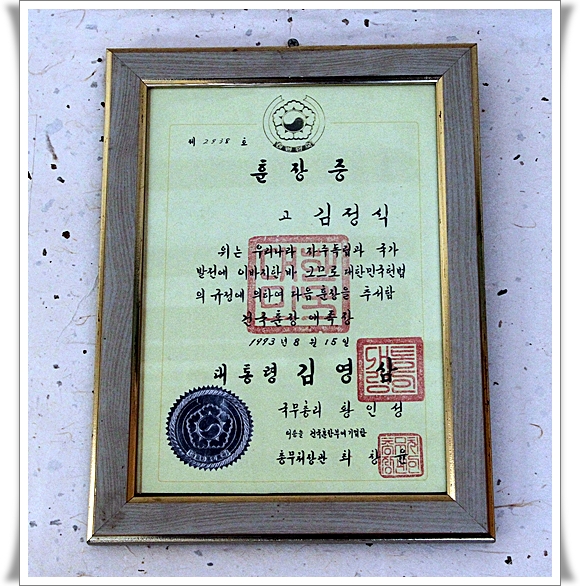 제 2938 호
훈장증
고 김정식
위는 우리나라 자주독립과 국가
발전에 이바지한 바 크므로 대한민국헌법
의 규정에 의하여 다음 훈장을 추서함
건국훈장 애족장
1993년 8월 15일
대통령 김영삼
국무총리 황인성
이증을 건국훈장부에 기입함
총무처장관 최창윤